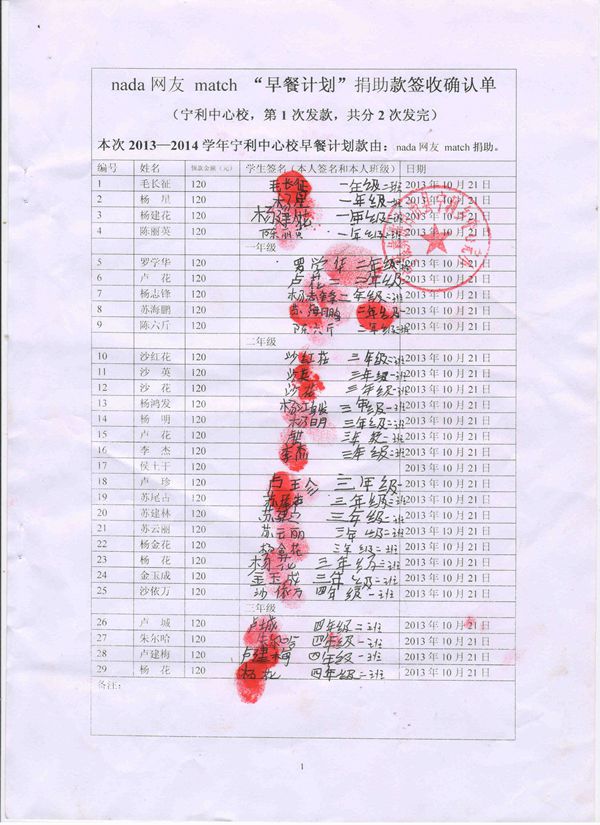 nada 网友 match “早餐计划”捐助款签收确认单
（宁利中心校，第 1 次发款，共分 2 次发完）
本次 2013—2014 学年宁利中心校早餐计划款由：nada 网友 match 捐助。
编号 姓名 领款金额（元） 学生签名（本人签名和本人班级） 日期
1 毛长征 120 毛长征 一年级二班 2013 年 10 月 21 日
2 杨 星 120 杨星 一年级一班 2013 年 10 月 21 日
3 杨建花 120 杨建花 一年级二班 2013 年 10 月 21 日
4 陈丽英 120 陈丽英 一年级二班 2013 年 10 月 21 日
一年级
5 罗学华 120 罗学华 二年级一班 2013 年 10 月 21 日
6 卢 花 120 卢花 二年级 2013 年 10 月 21 日
7 杨志锋 120 杨志锋 二年级二班 2013 年 10 月 21 日
8 苏海鹏 120 苏海鹏 二年级 2013 年 10 月 21 日
9 陈六斤 120 陈六斤 二年级 2013 年 10 月 21 日
二年级
10 沙红花 120 沙红花 三年级二班 2013 年 10 月 21 日
11 沙 英 120 沙英 三年级一班 2013 年 10 月 21 日
12 沙 花 120 沙花 三年级二班 2013 年 10 月 21 日
13 杨鸿发 120 三年级一班 2013 年 10 月 21 日
14 杨 明 120 杨明 三年级二班 2013 年 10 月 21 日
15 卢 花 120 三年级一班 2013 年 10 月 21 日
16 李 杰 120 李杰 三年级二班 2013 年 10 月 21 日
17 侯土干 120 2013 年 10 月 21 日
18 卢 珍 120 三年级 2013 年 10 月 21 日
19 苏尾古 120 三年级二班 2013 年 10 月 21 日
20 苏建林 120 三年级二班 2013 年 10 月 21 日
21 苏云丽 120 苏云丽 三年级二班 2013 年 10 月 21 日
22 杨金花 120 杨金花 三年级二班 2013 年 10 月 21 日
23 杨 花 120 杨花 三年级二班 2013 年 10 月 21 日
24 金玉成 120 金玉成 三年级二班 2013 年 10 月 21 日
25 沙依万 120 沙依万 四年级一班 2013 年 10 月 21 日
三年级
26 卢 城 120 卢城 四年级二班 2013 年 10 月 21 日
27 朱尔哈 120 朱尔哈 四年级一班 2013 年 10 月 21 日
28 卢建梅 120 卢建梅 四年级一班 2013 年 10 月 21 日
29 杨 花 120 杨花 四年级一班 2013 年 10 月 21 日
备注：
1